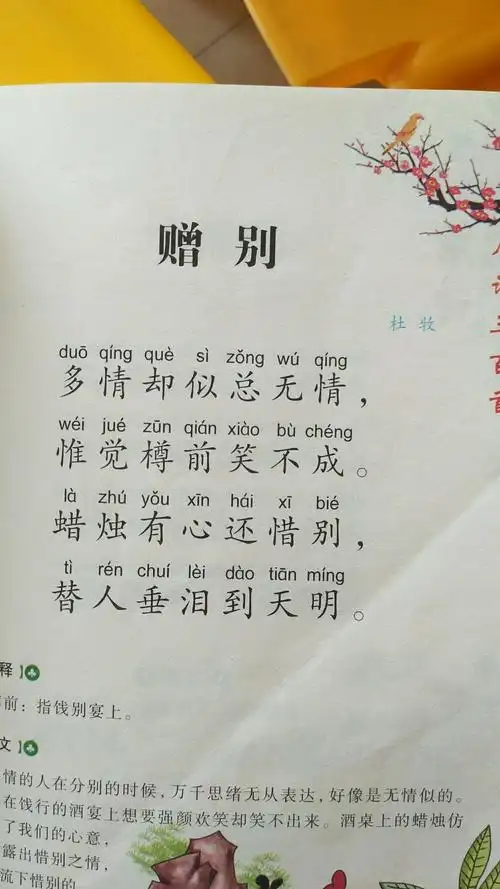 赠别
杜牧
duō qíng què sì zǒng wú qíng
多情却似总无情，
wéi jué zūn qián xiào bù chéng
惟觉樽前笑不成。
là zhú yǒu xīn hái xī bié
蜡烛有心还惜别，
tì rén chuí lèi dào tiān míng
替人垂泪到天明。
释】
前：指饯别宴上。
文】
情的人在分别的时候，万千思绪无从表达，好像是无情似的。
在饯行的酒宴上想要强颜欢笑却笑不出来。酒桌上的蜡烛仿
了我们的心意，
露出惜别之情，
流下惜别的
诗
三
百
首